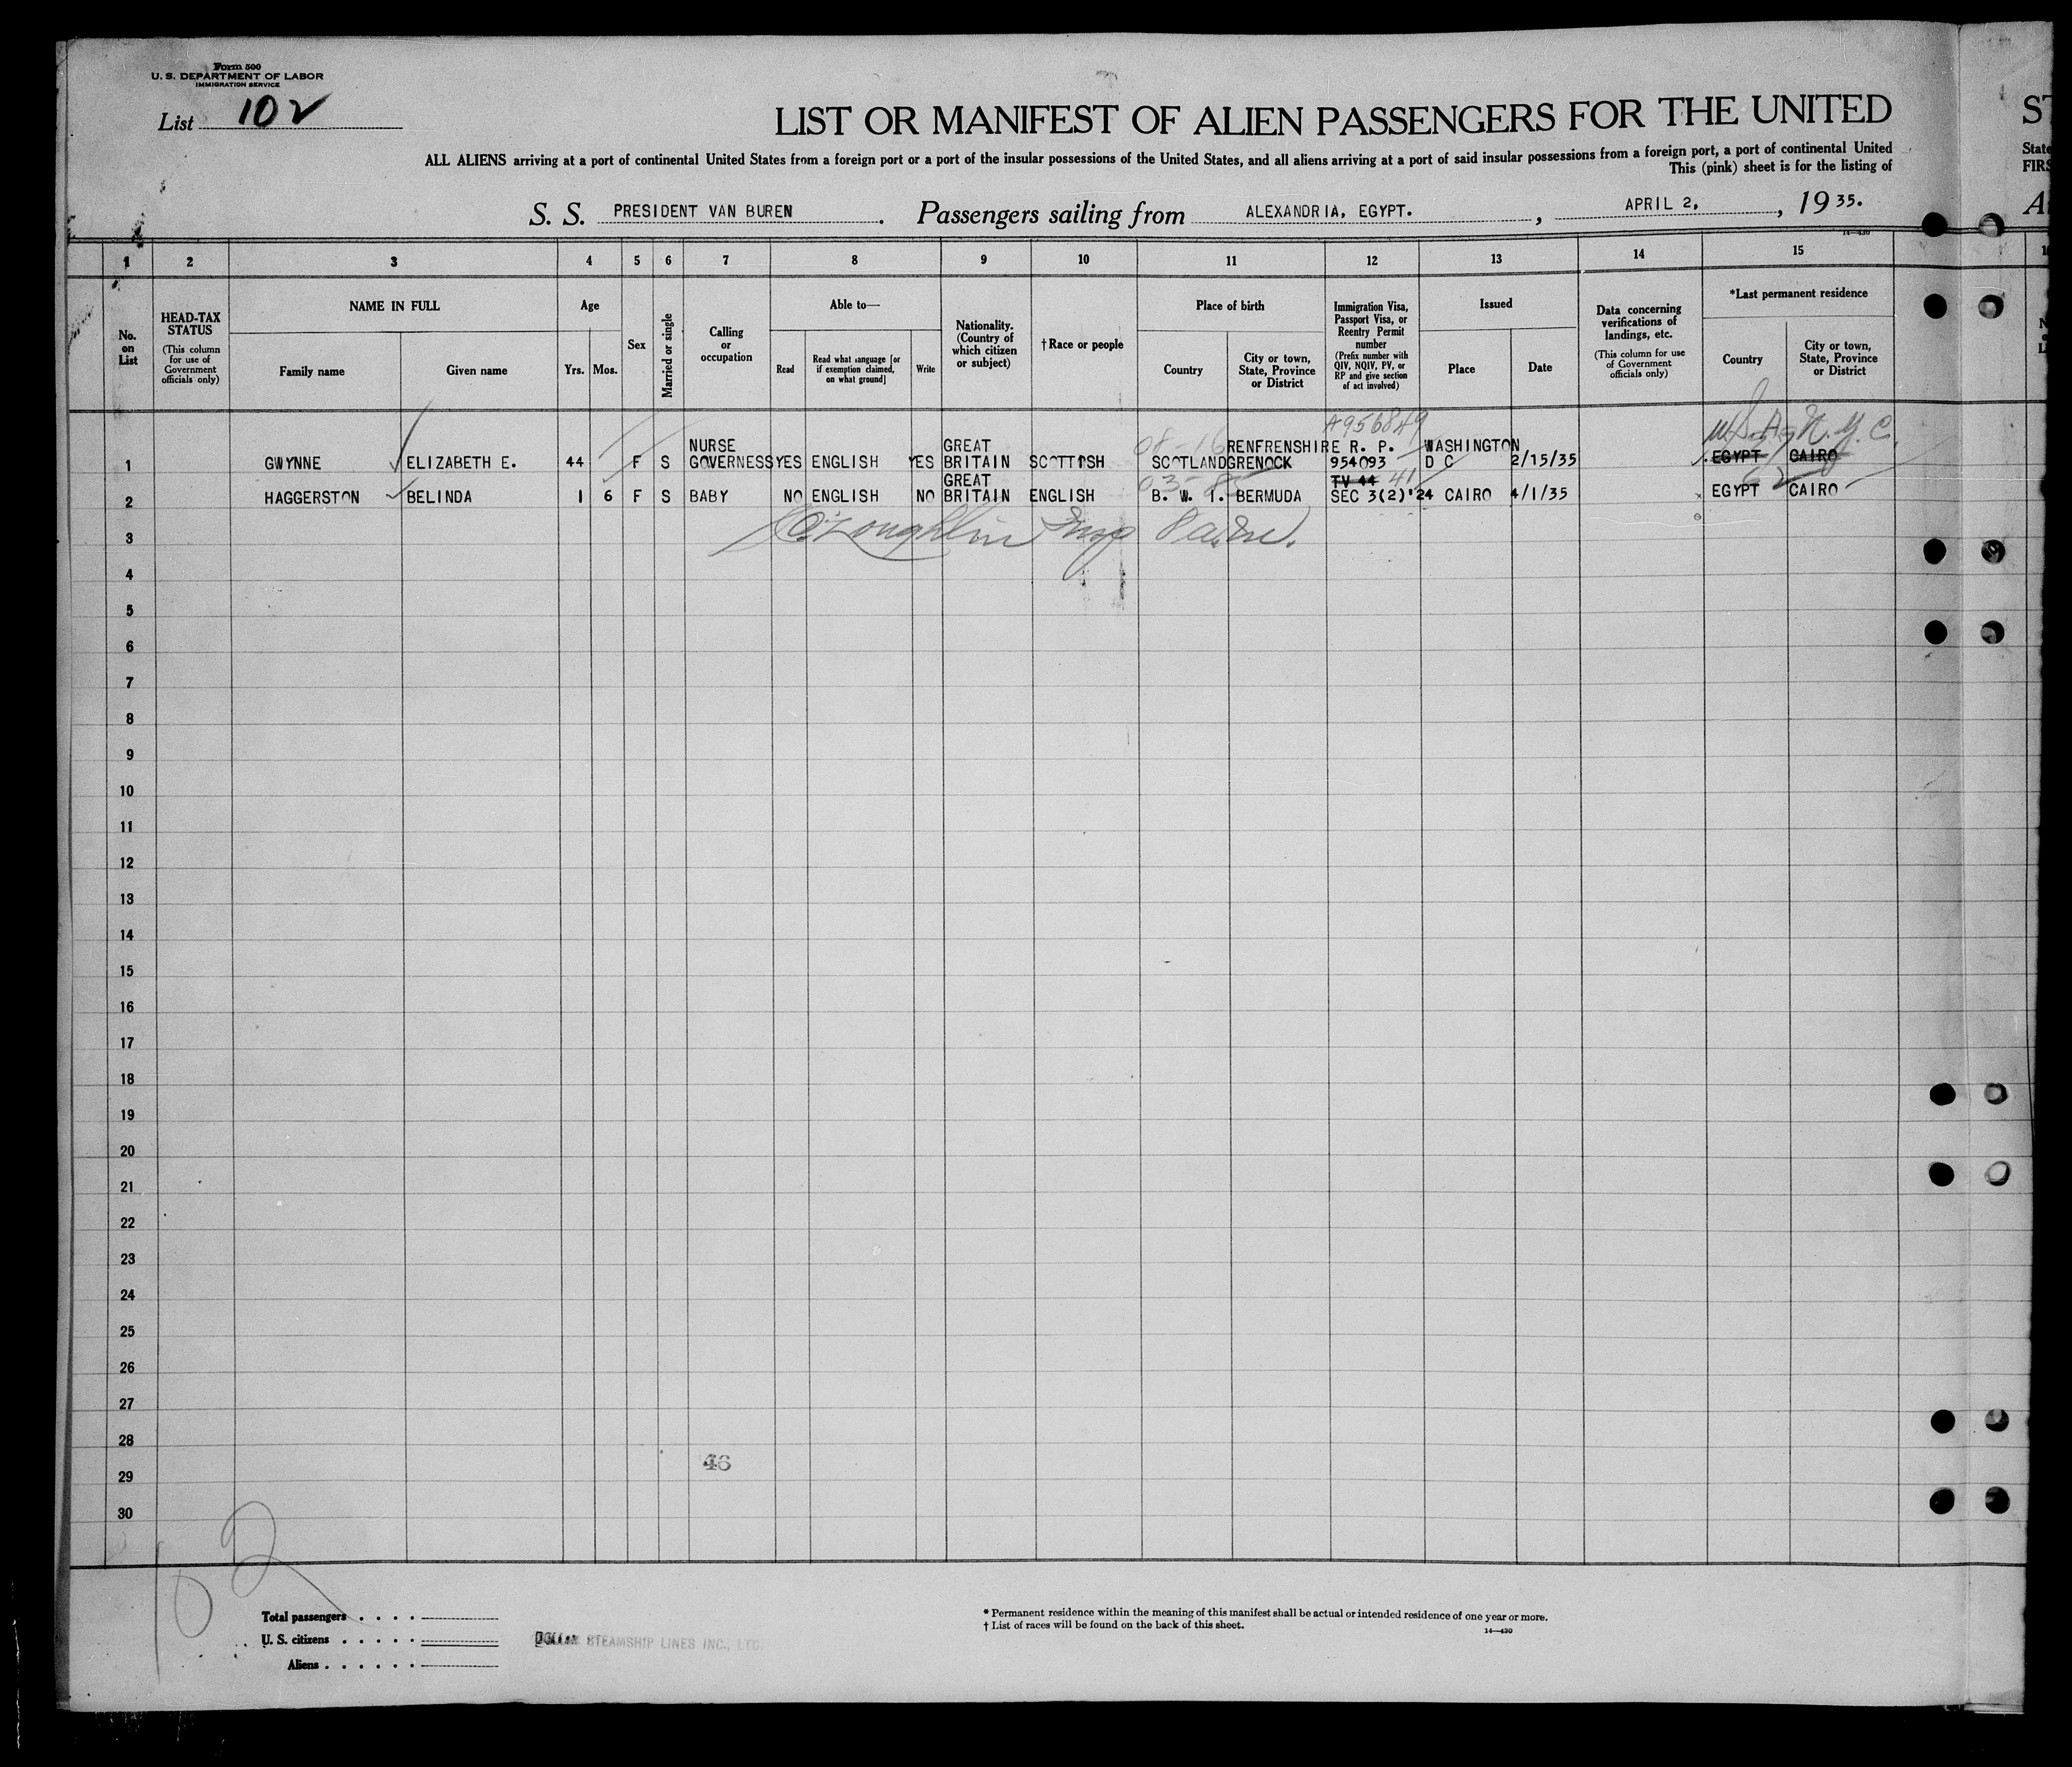 Form 500
U. S. DEPARTMENT OF LABOR
IMMIGRATION SERVICE
List 102
LIST OR MANIFEST OF ALIEN PASSENGERS FOR THE UNITED
ST
ALL ALIENS arriving at a port of continental United States from a foreign port or a port of the insular possessions of the United States, and all aliens arriving at a port of said insular possessions from a foreign port, a port of continental United
State
This (pink) sheet is for the listing of
FIRS
S. S. PRESIDENT VAN BUREN . Passengers sailing from ALEXANDRIA, EGYPT. , APRIL 2, , 19 35.
A
14—430
1 2 3 4 5 6 7 8 9 10 11 12 13 14 15
No. on List
HEAD-TAX STATUS
(This column for use of Government officials only)
NAME IN FULL
Family name
Given name
Age
Yrs. Mos.
Sex
Married or single
Calling or occupation
Able to—
Read
Read what language [or if exemption claimed, on what ground]
Write
Nationality. (Country of which citizen or subject)
†Race or people
Place of birth
Country
City or town, State, Province or District
Immigration Visa, Passport Visa, or Reentry Permit number
(Prefix number with QIV, NQIV, PV, or RP and give section of act involved)
Issued
Place
Date
Data concerning verifications of landings, etc.
(This column for use of Government officials only)
*Last permanent residence
Country
City or town, State, Province or District
A956849
U.S.A. N.Y.C.
NURSE GREAT 08-16 RENFRENSHIRE R. P. WASHINGTON
1 GWYNNE ELIZABETH E. 44 F S GOVERNESS YES ENGLISH YES BRITAIN SCOTTISH SCOTLAND GRENOCK 954093 D C 2/15/35 EGYPT CAIRO
GREAT TV 44 41
2 HAGGERSTON BELINDA 1 6 F S BABY NO ENGLISH NO BRITAIN ENGLISH B. W. I. BERMUDA SEC 3(2)'24 CAIRO 4/1/35 EGYPT CAIRO
3 O'Loughlin Insp
4
5
6
7
8
9
10
11
12
13
14
15
16
17
18
19
20
21
22
23
24
25
26
27
28
46
29
30
102
Total passengers
U. S. citizens
Aliens
DOLLAR STEAMSHIP LINES INC., LTD.
* Permanent residence within the meaning of this manifest shall be actual or intended residence of one year or more.
† List of races will be found on the back of this sheet.
14—430